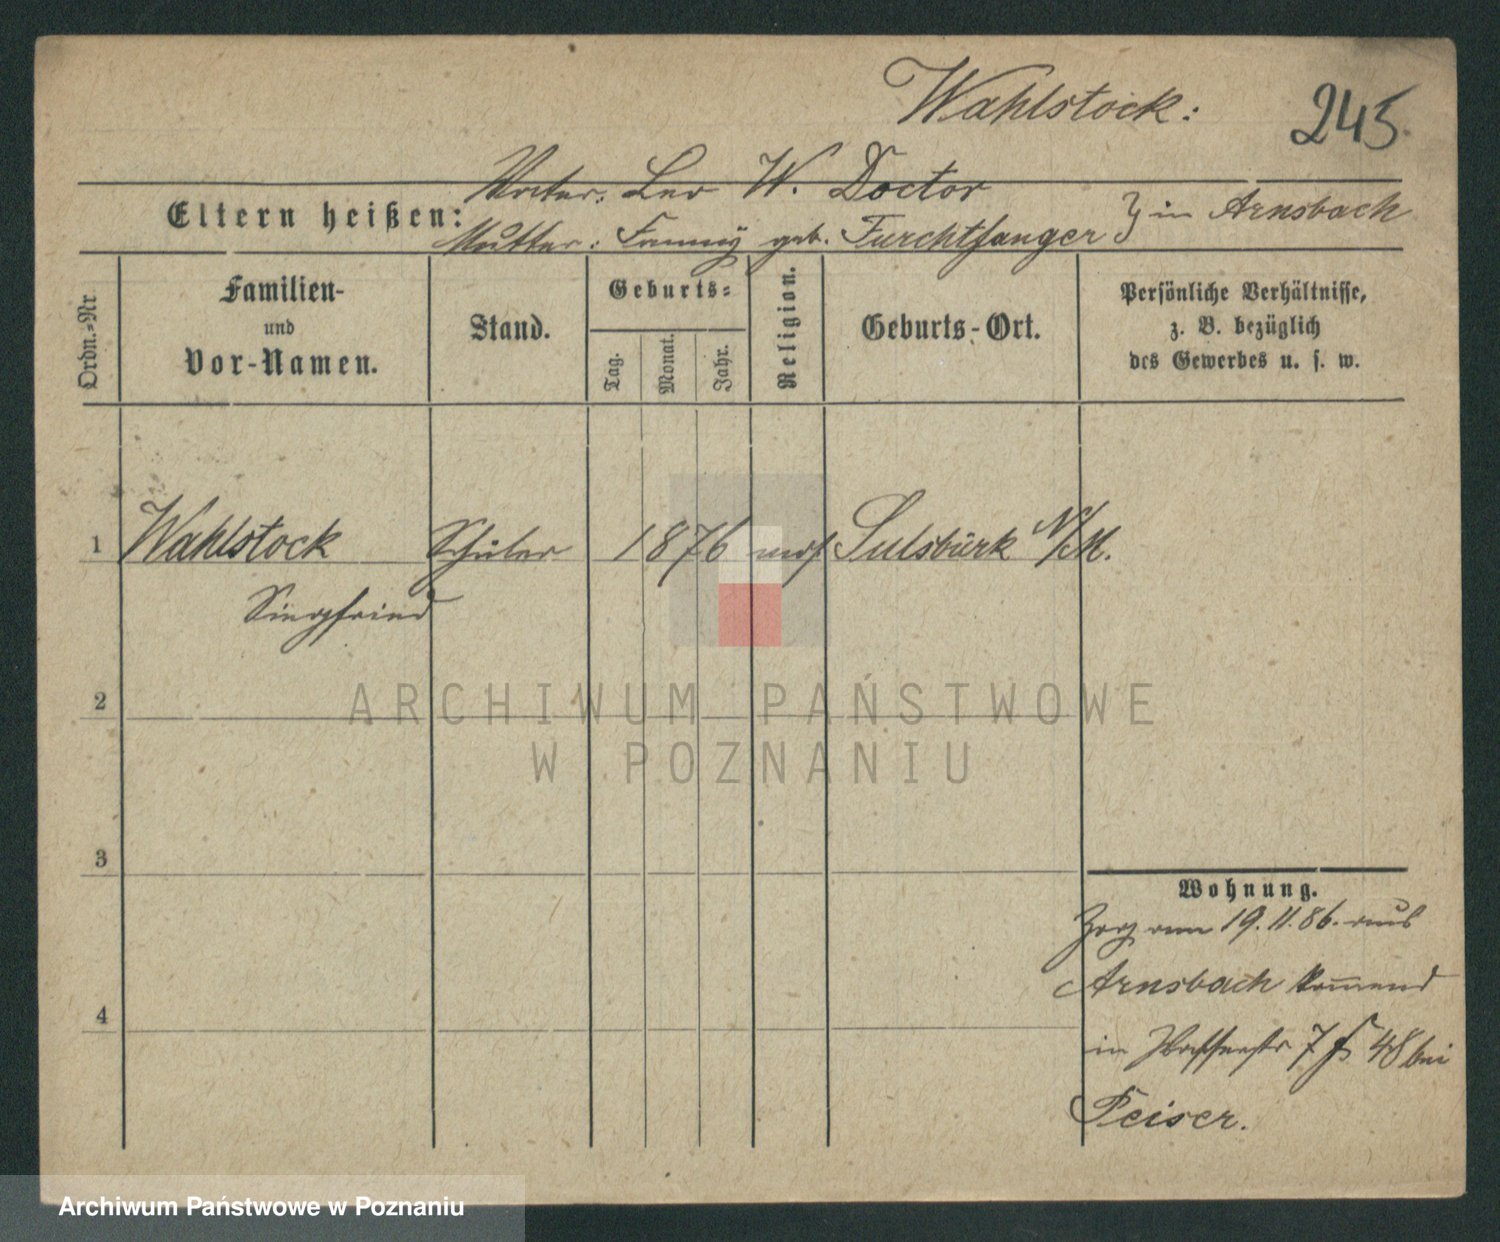 Wahlstock:
245.
Vater: Leo W. Doctor
Eltern heißen:
Mutter: Fanny geb. Furchtsanger } in Arnsbach
Ordn.=Nr.
Familien-
und
Vor-Namen.
Stand.
Geburts=
Tag.
Monat.
Jahr.
Religion.
Geburts-Ort.
Persönliche Verhältnisse,
z. B. bezüglich
des Gewerbes u. s. w.
1 Wahlstock Schüler 1876 mos. Sulsbürk N/M.
Siegfried
2
ARCHIWUM PAŃSTWOWE
W POZNANIU
3
Wohnung.
Zog am 19.11.86. aus
Arnsbach kommend
4
in 7 48 bei
Peiser.
Archiwum Państwowe w Poznaniu